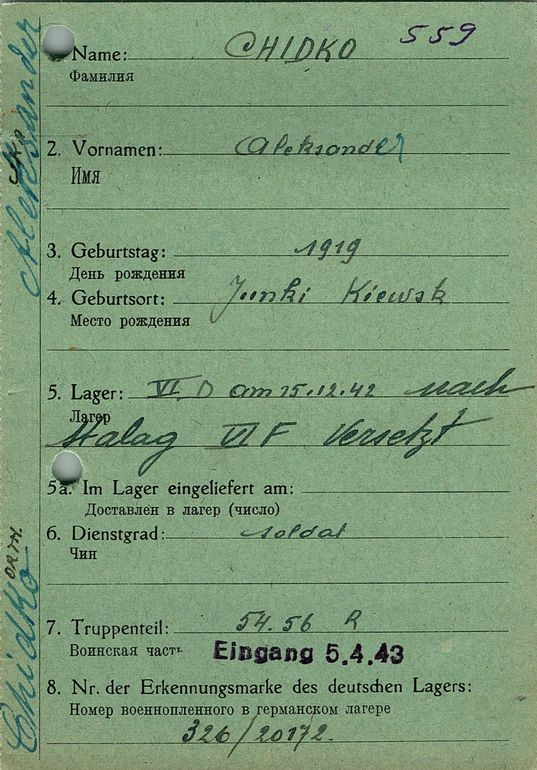 559
Name: CHIDKO
Фамилия
2. Vornamen: Aleksander
Имя
3. Geburtstag: 1919
День рождения
4. Geburtsort: Junki Kiewsk
Место рождения
5. Lager: VI. D am 15.12.42 nach
Лагер
Stalag VI F versetzt
5a. Im Lager eingeliefert am:
Доставлен в лагер (число)
6. Dienstgrad: soldat
Чин
7. Truppenteil: 54.56 R
Воинская часть
Eingang 5.4.43
8. Nr. der Erkennungsmarke des deutschen Lagers:
Номер военнопленного в германском лагере
326/20172.
Chidko Aleksander